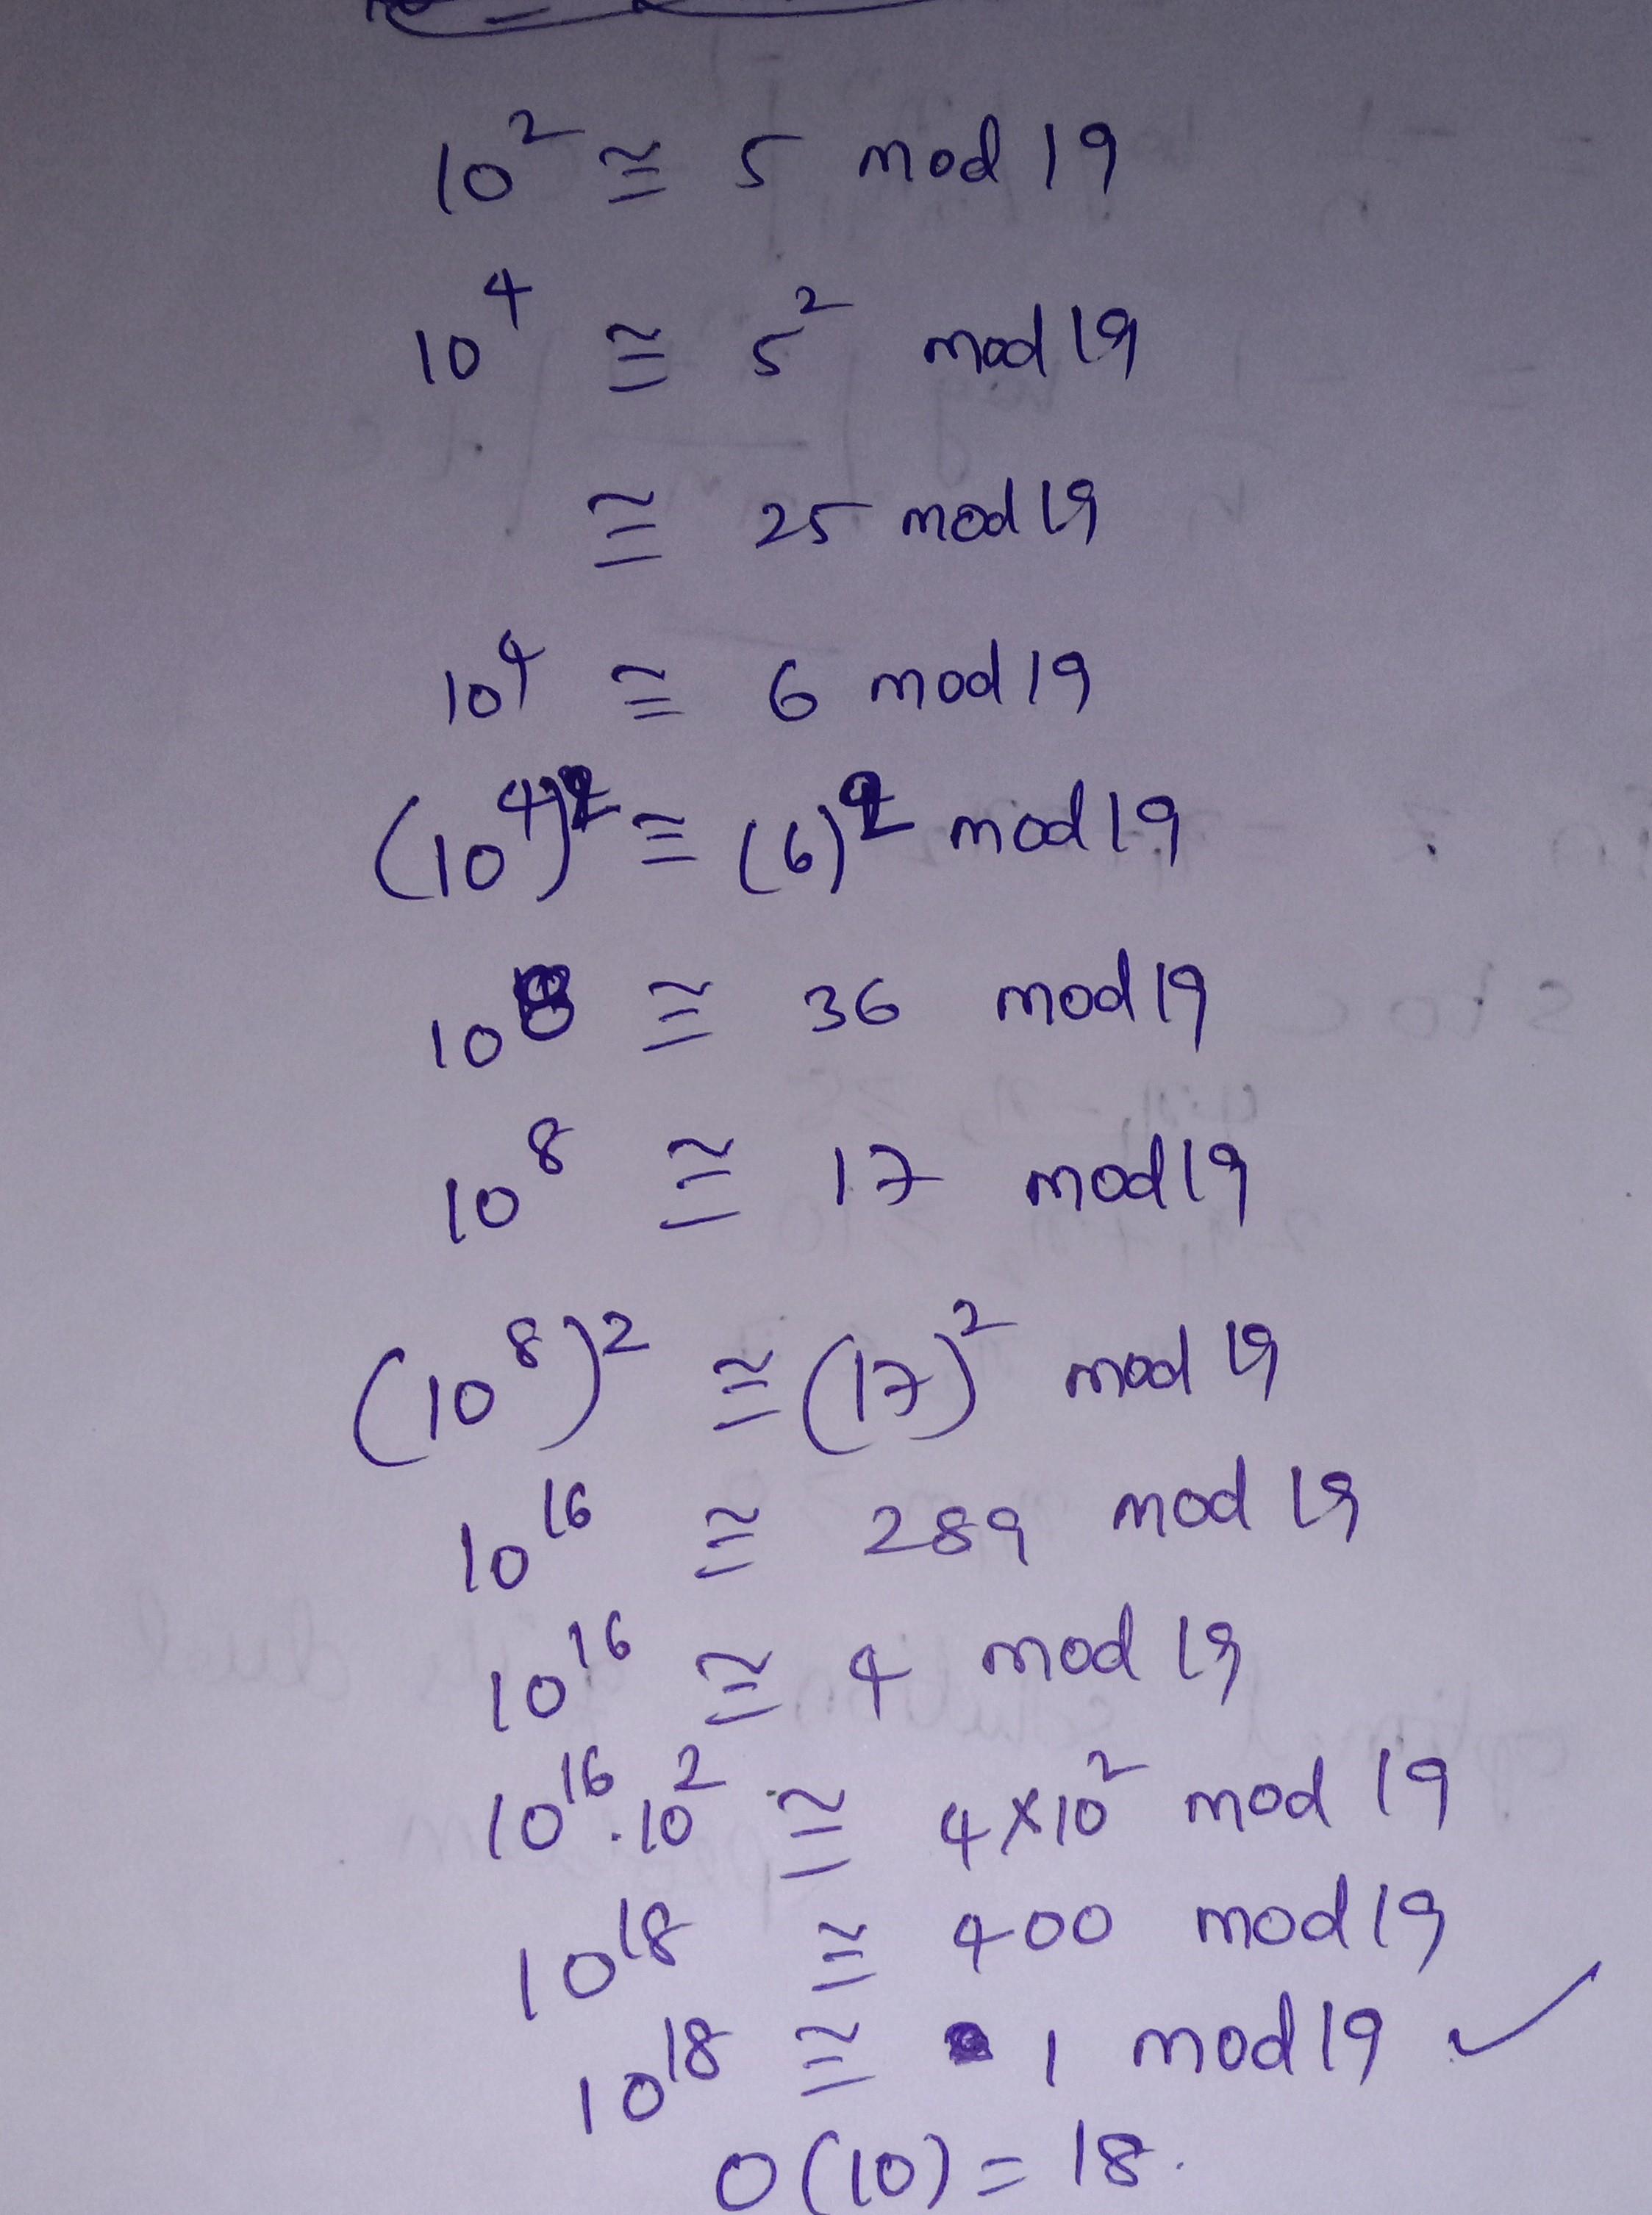 10² ≅ 5 mod 19
10⁴ ≅ 5² mod 19
≅ 25 mod 19
10⁴ ≅ 6 mod 19
(10⁴)² ≅ (6)² mod 19
10⁸ ≅ 36 mod 19
10⁸ ≅ 17 mod 19
(10⁸)² ≅ (17)² mod 19
10¹⁶ ≅ 289 mod 19
10¹⁶ ≅ 4 mod 19
10¹⁶.10² ≅ 4×10² mod 19
10¹⁸ ≅ 400 mod 19
10¹⁸ ≅ 1 mod 19 ✓
O(10) = 18.